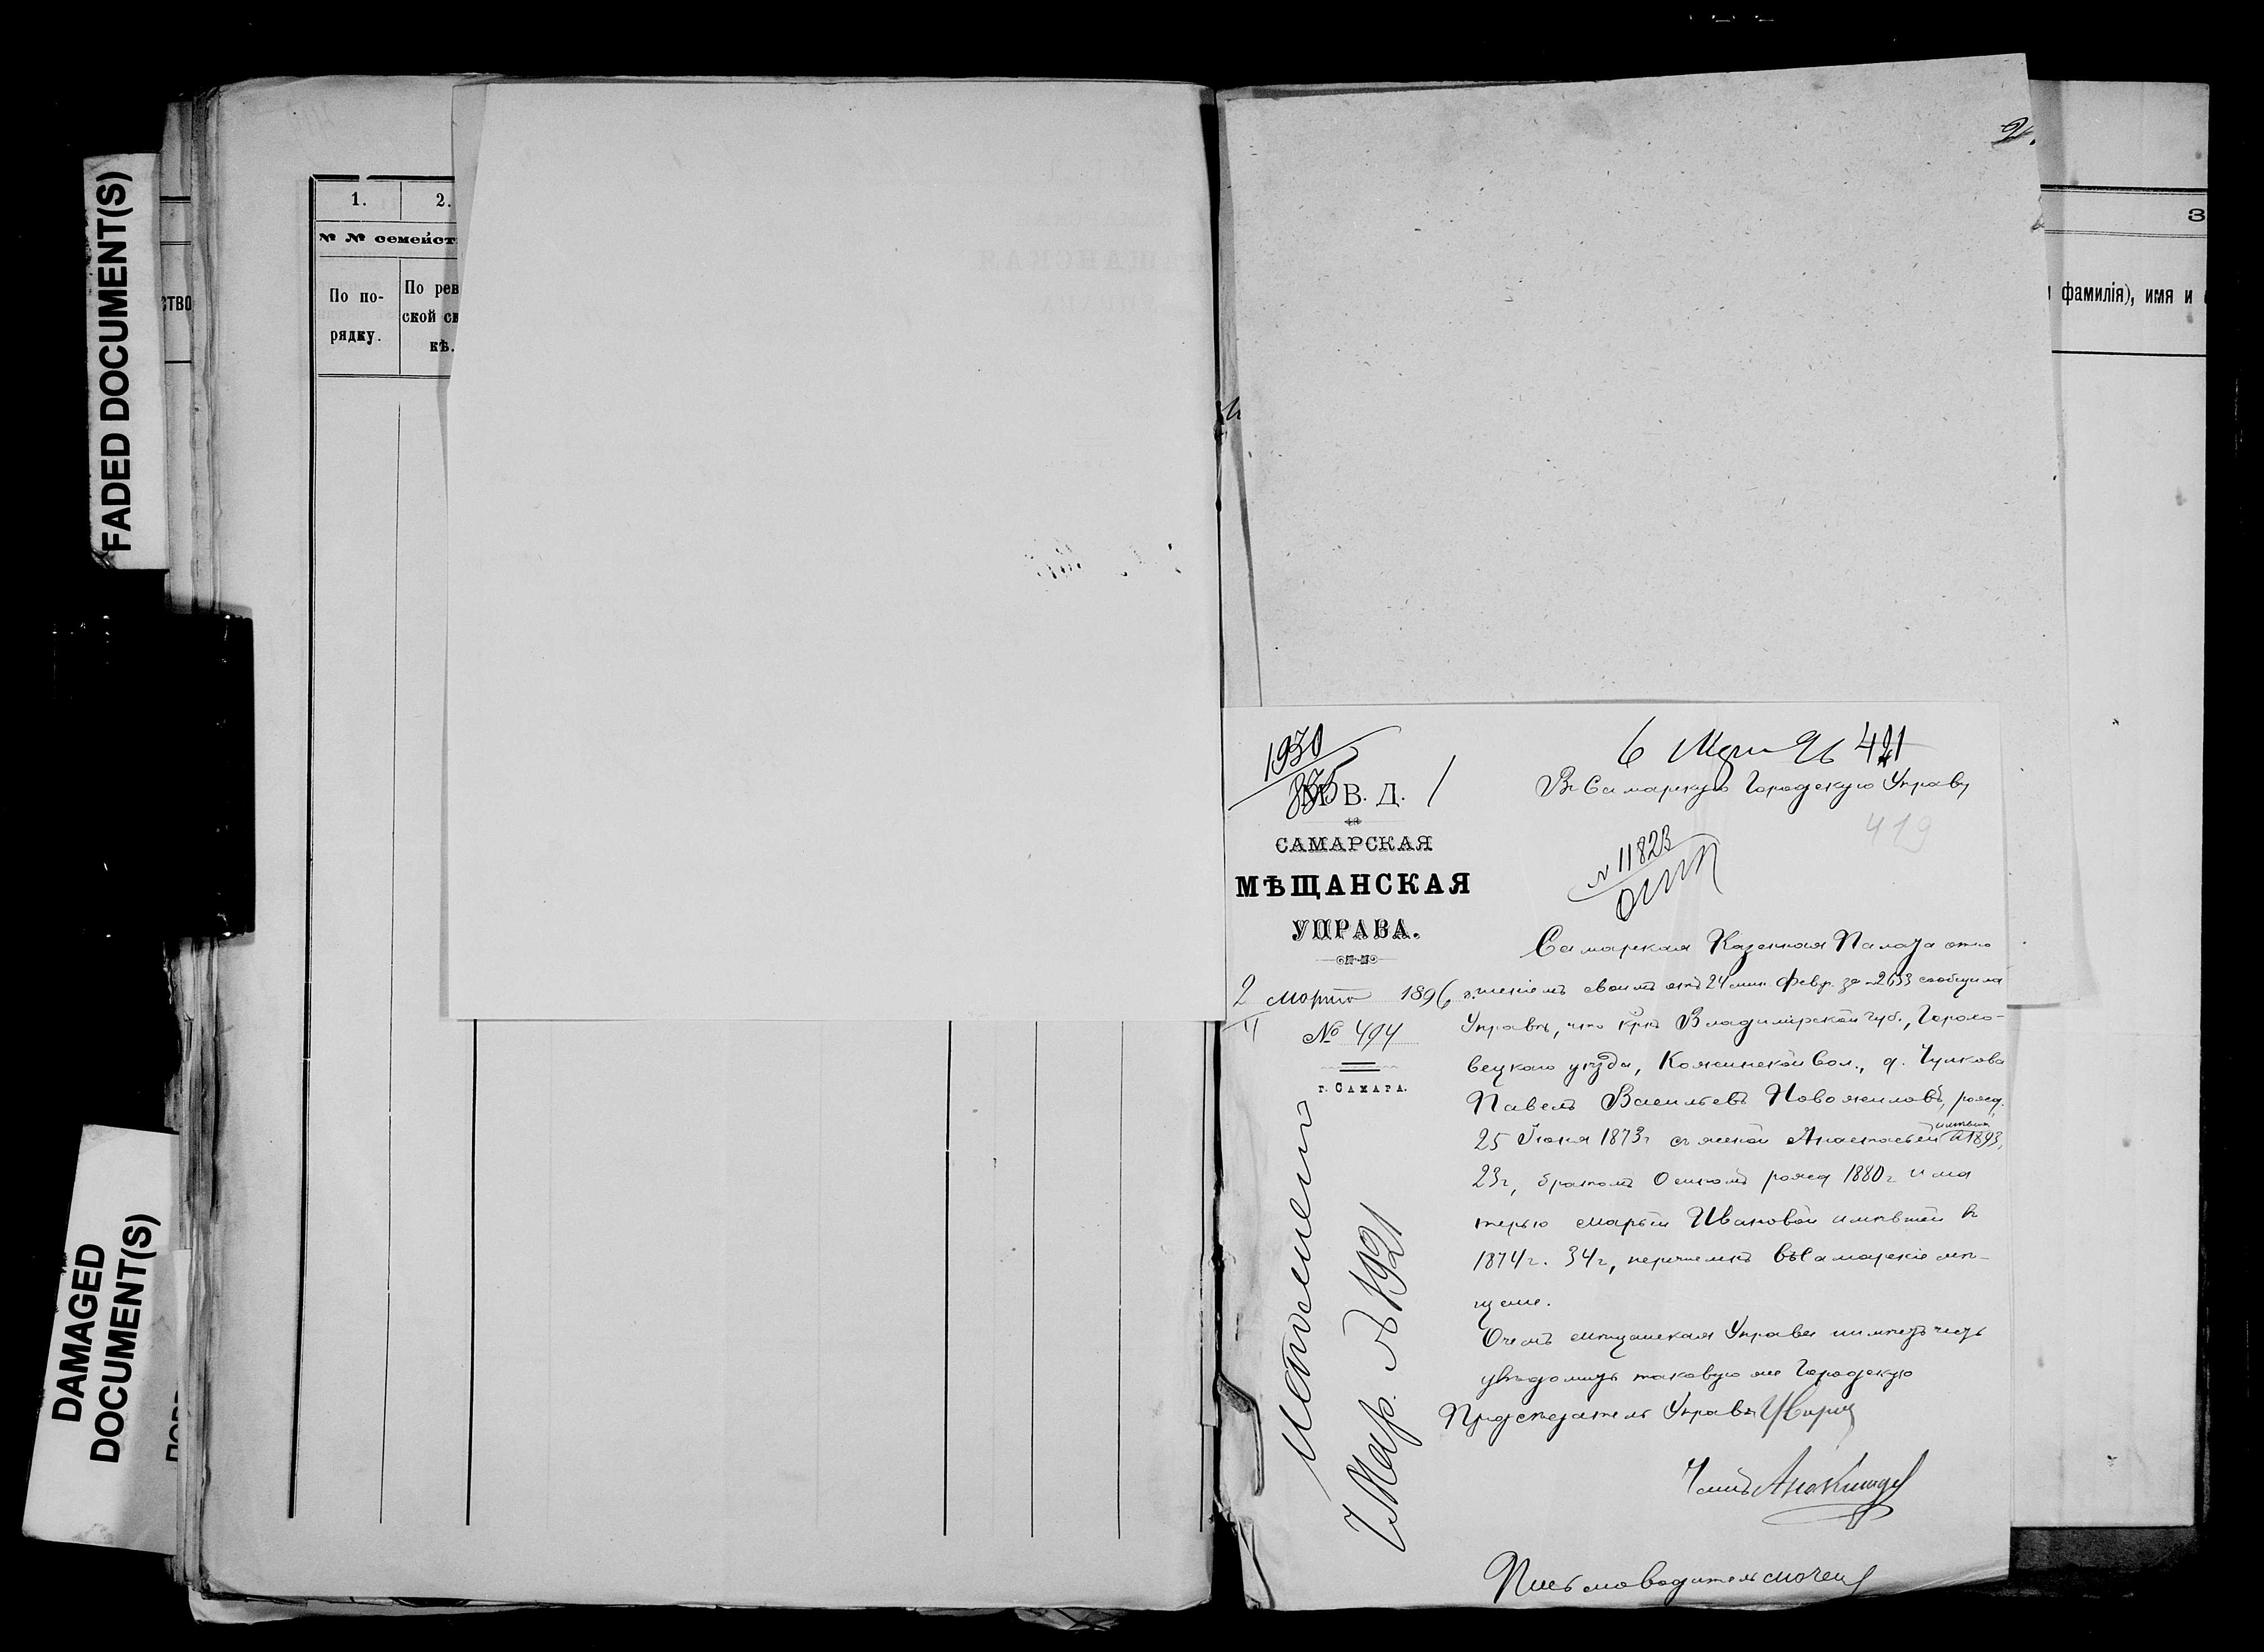 FADED DOCUMENT(S)
DAMAGED
DOCUMENT(S)
1. 2.
№ № семейст
По по-
рядку.
По рев
ской ск
кѣ.
СТВО
3
фамилія), имя и
1930
835
М. В. Д.
САМАРСКАЯ
МѢЩАНСКАЯ
УПРАВА.
2 марта 1896 г.
№ 494
г. САМАРА.
7 Мар. № 1921
6 Мрт 96 421
Въ Самарскую Городскую Управу
419
№ 11823
Самарская Казенная Палата отно
шеніемъ своимъ отъ 24 мин. Февр. за № 2633 сообщила
Управѣ, что кр-нъ Владимірской губ., Горохо-
вецкаго уѣзда, Кожинской вол., д. Чулкова
Павелъ Васильевъ Новожиловъ, рожд.
25 Іюня 1873 г. съ женой Анастасіей имѣвш. въ 1893
23 г, братомъ Осипомъ рожд 1880 г. и ма
терью Марьей Ивановой имѣвшей въ
1874 г. 34 г, перечисленъ въ Самарскіе мѣ-
щане.
О чемъ Мѣщанская Управа и имѣетъ честь
увѣдомить таковую же Городскую
Предсѣдатель Управы
Членъ
Письмоводитель